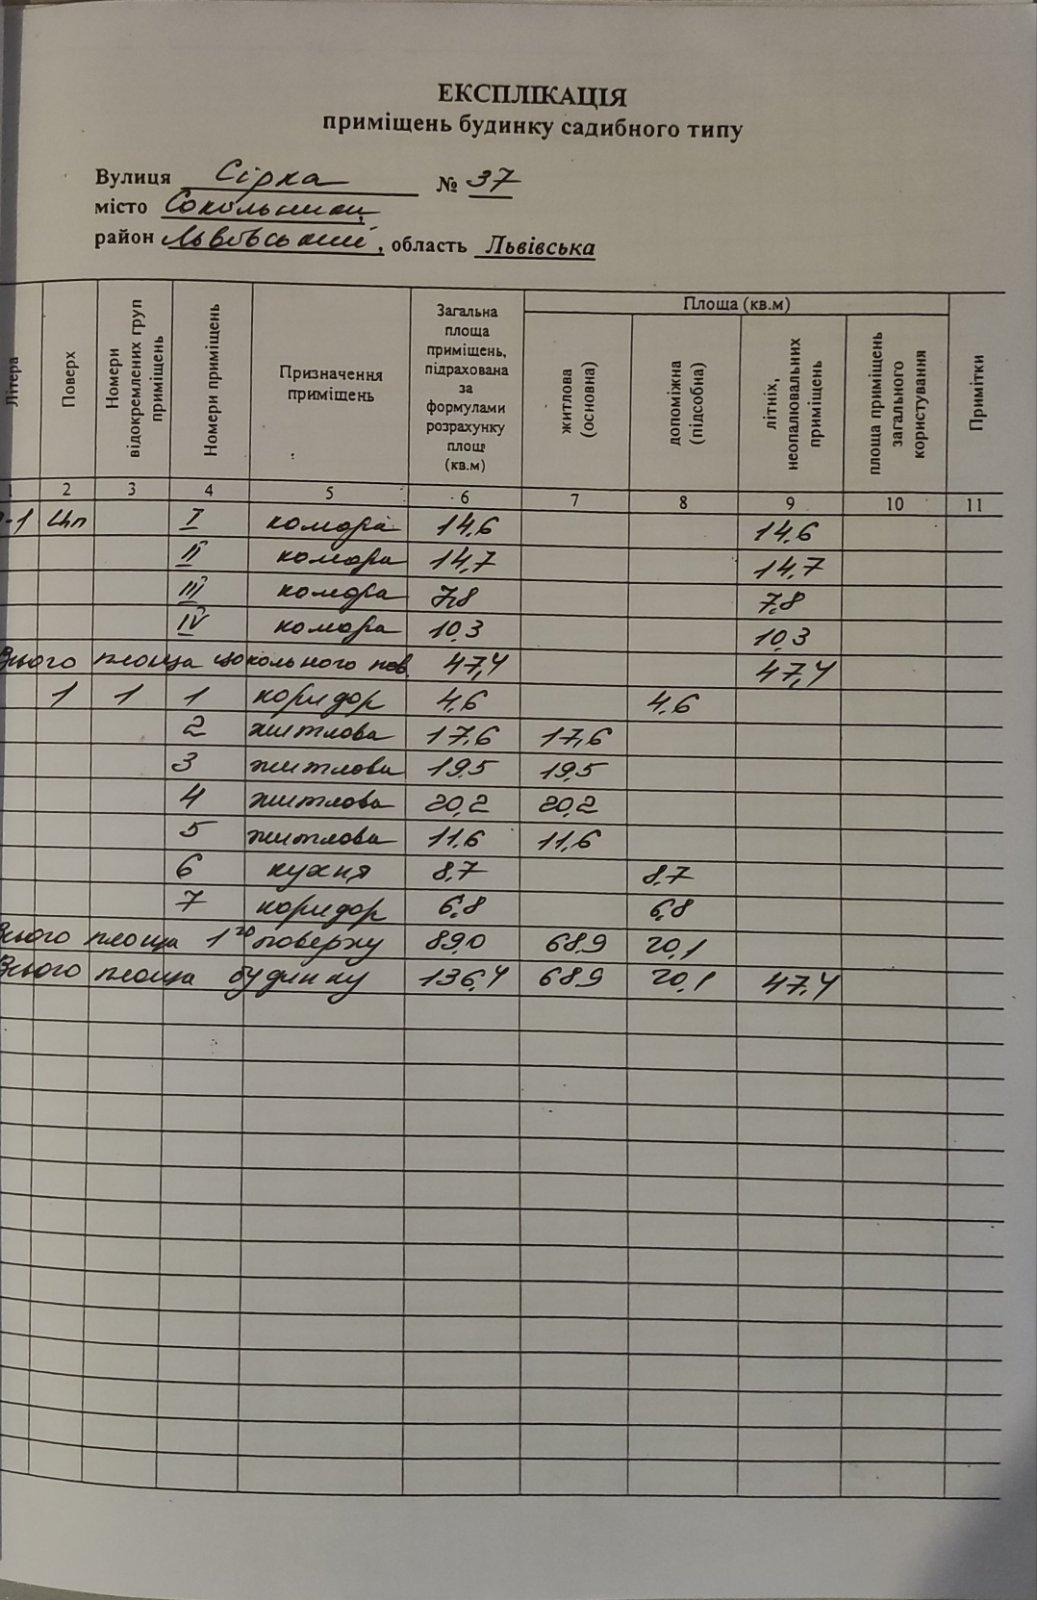 ЕКСПЛІКАЦІЯ
приміщень будинку садибного типу
Вулиця Сірка № 37
місто Сокольники
район Львівський, область Львівська
Літера Поверх Номери відокремлених груп приміщень Номери приміщень Призначення приміщень Загальна площа приміщень, підрахована за формулами розрахунку площ (кв.м) Площа (кв.м) житлова (основна) допоміжна (підсобна) літніх, неопалювальних приміщень площа приміщень загального користування Примітки
1 2 3 4 5 6 7 8 9 10 11
-1 Цп I комора 14,6 14,6
II комора 14,7 14,7
III комора 7,8 7,8
IV комора 10,3 10,3
Всього площа цокольного пов. 47,4 47,4
1 1 1 коридор 4,6 4,6
2 житлова 17,6 17,6
3 житлова 19,5 19,5
4 житлова 20,2 20,2
5 житлова 11,6 11,6
6 кухня 8,7 8,7
7 коридор 6,8 6,8
Всього площа 1го поверху 89,0 68,9 20,1
Всього площа будинку 136,4 68,9 20,1 47,4